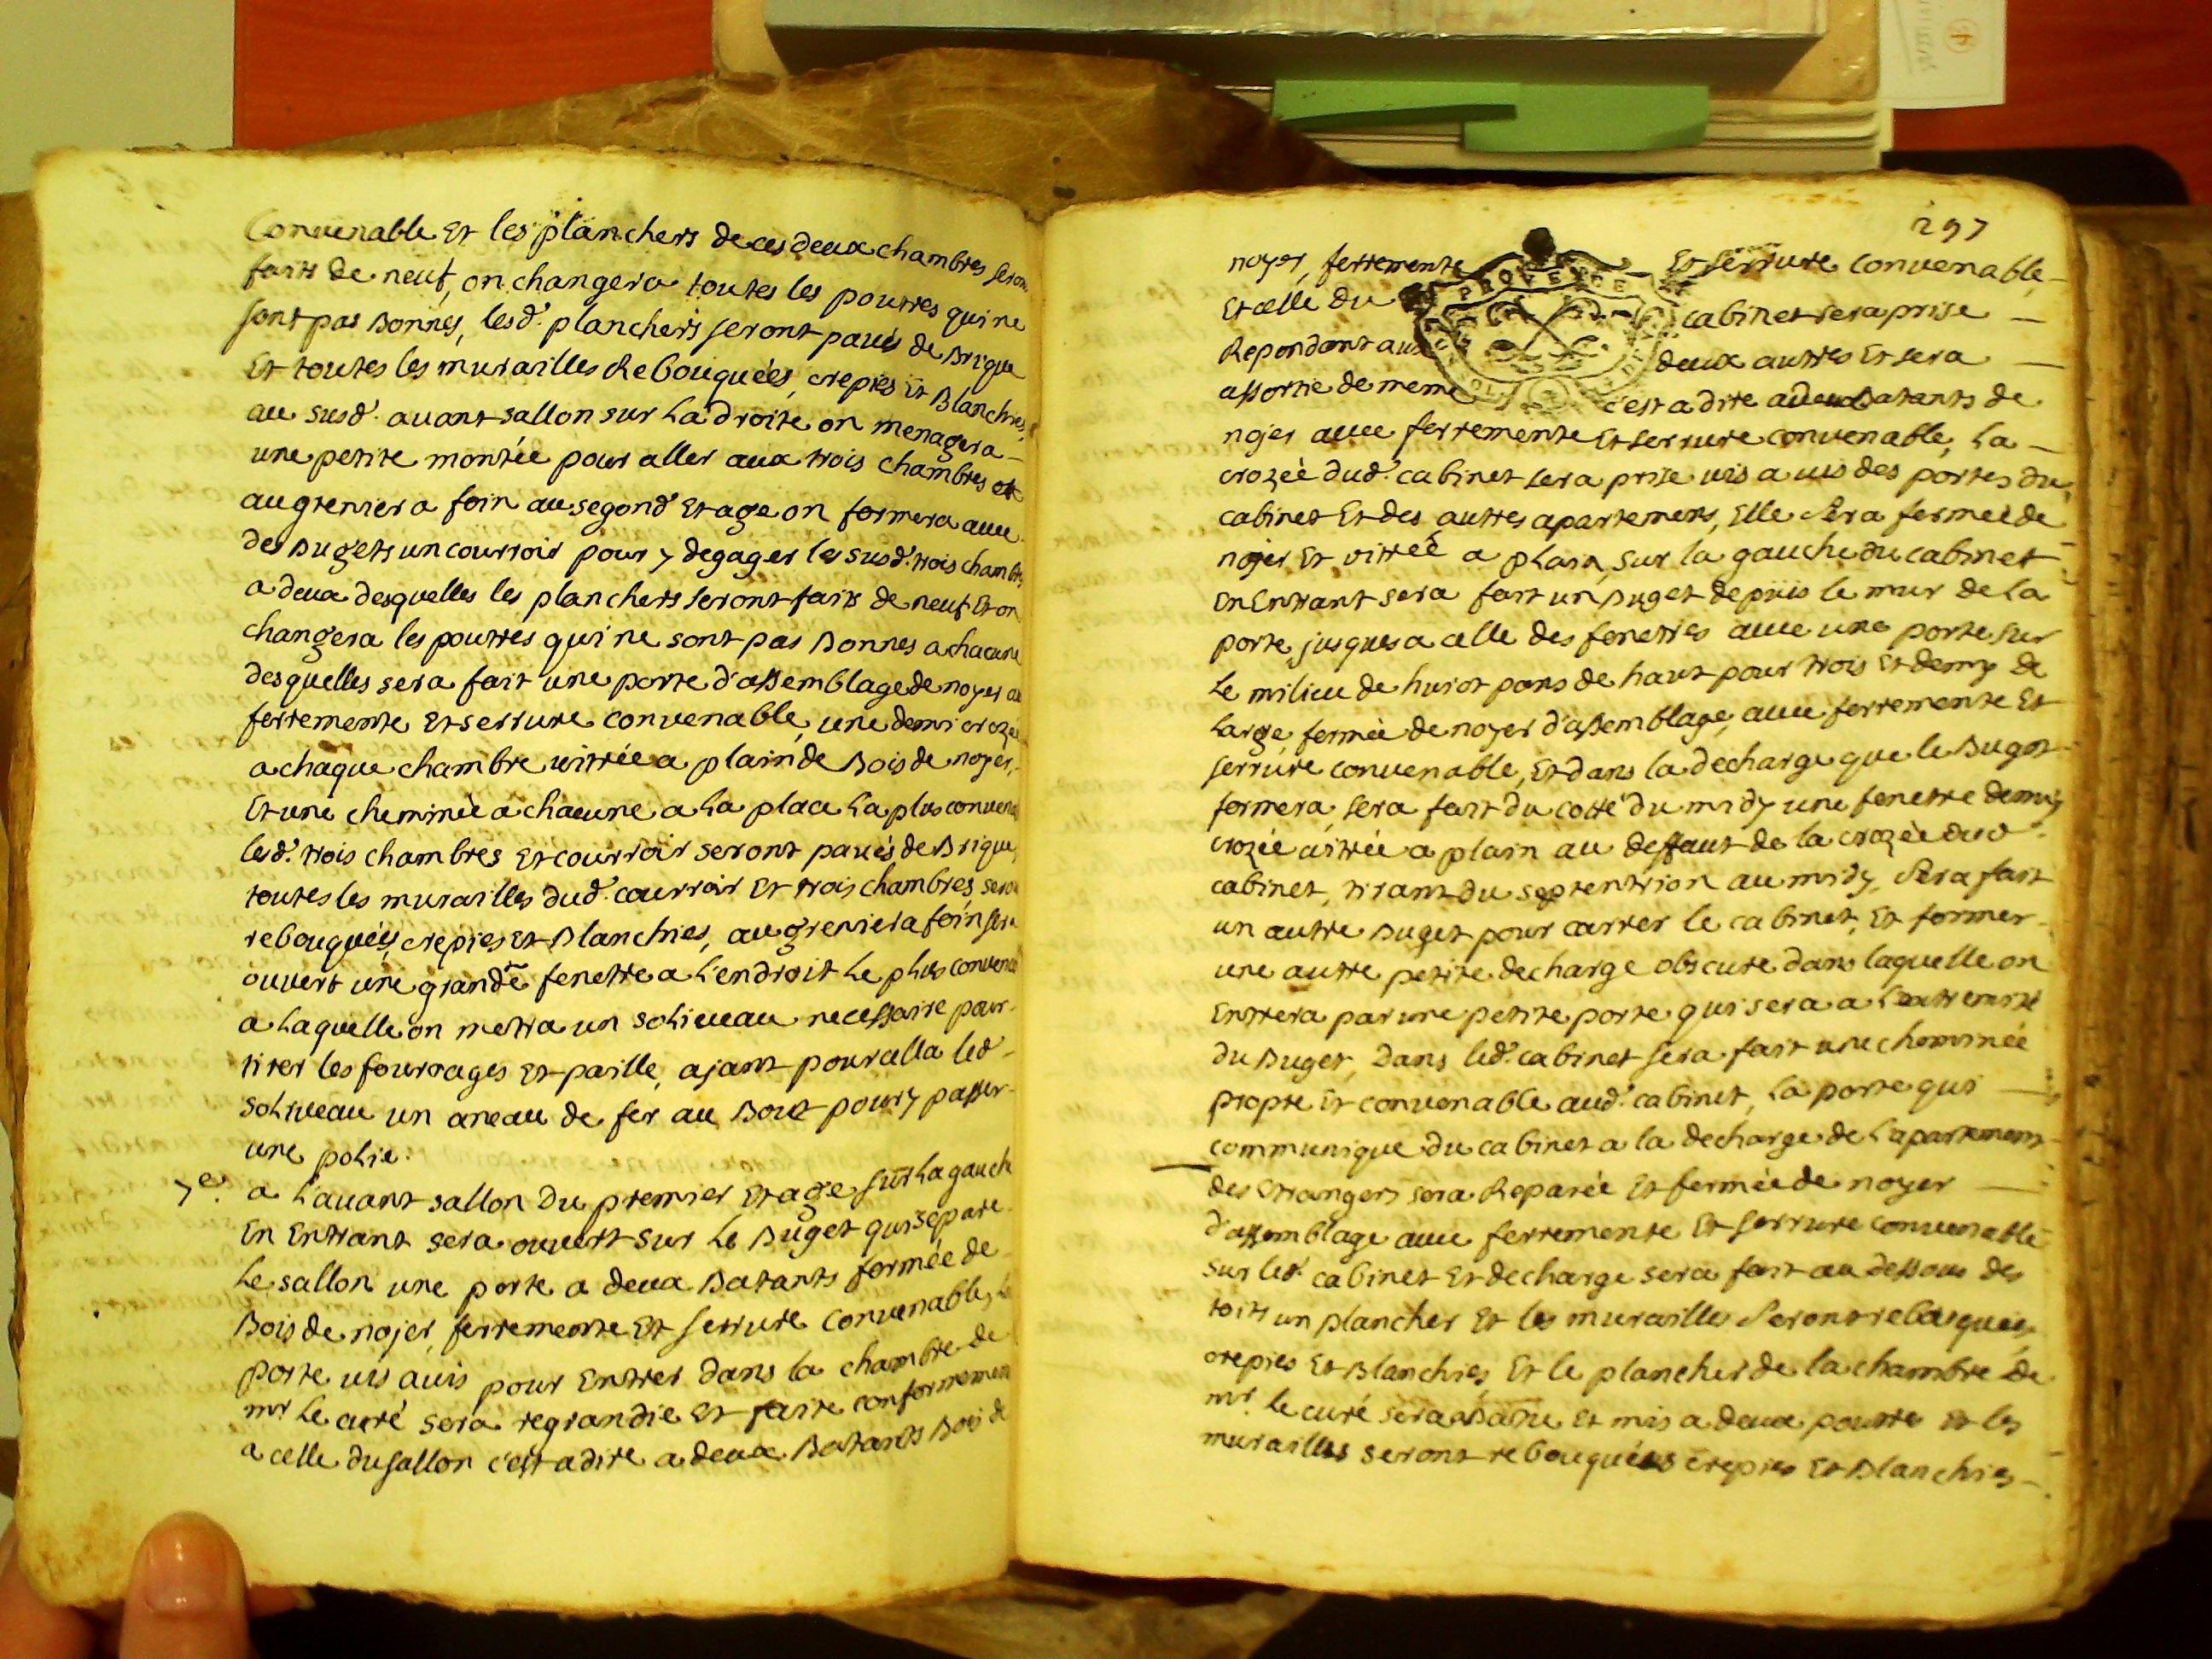 Convenable Et les planchers de ces deux chambres seron
faits de neuf, on changera toutes les poutres qui ne
sont pas Bonnes, lesd. planchers seront pavés de Brique
Et toutes les murailles Rebouquées, crepies Et Blanchies,
au susd. avant sallon sur La droite on menagera
une petite montée pour aller aux trois chambres et
au grenier a foin au segond Etage on formera avec
des Bugets un courroir pour y degager les susd. trois chambres
a deux desquelles les planchers seront faits de neuf Et on
changera les poutres qui ne sont pas Bonnes a chacune
desquelles sera fait une porte d'assemblage de noyer av
ferremente Et serrure convenable, une demi croze
a chaque chambre vitrée a plain de Bois de noyer,
Et une cheminée a chacune a La place La plus convena
lesd. trois chambres Et courroir seront pavés de Brique,
toutes les murailles dud. courroir Et trois chambres, sero
rebouquées, crepies Et Blanchies, au grenier a foin sera
ouvert une grande fenettre a L'endroit Le plus convena
a Laquelle on metra un soliveau necessaire pour
tirer les fourrages Et paille, ajant pour cella led
soliveau un aneau de fer au Bout pour y passer
une polie.
7e. a L'avant sallon Du premier Etage sur La gauch
En Entrant sera ouvert sur Le Buget qui separe
Le sallon une porte a deux Batants formée de
Bois de nojer, ferremente Et serrure Convenable, La
porte vis avis pour Entrer dans la chambre de
mr Le curé sera regrandie Et faite conformemen
a celle du sallon c'est a dire a deux Batants Bois de
297
noyer, ferremente Et serrure Convenable,
Et celle du cabinet sera prise
Repondant aux deux autres Et sera
assortie de meme c'est a dire a deux Batants de
nojer avec ferremente Et serrure convenable, La
crozée dud. cabinet sera prise vis a vis des portes du
cabinet Et des autres apartemens, Elle Sera fermée de
nojer Et vitrée a plain, sur la gauche du cabinet
En Entrant sera fait un Buget depuis le mur de La
porte jusques a celle des fenettres avec une porte sur
Le milieu de huiot pans de haut pour trois Et demy de
Large, fermée de noyer d'assemblage, avec ferremente Et
serrure convenable, Et dans la decharge que le Buget
formera, sera fait du cotté du midy une fenettre demy
crozée vitrée a plain au deffaut de la crozée dud.
cabinet, tirant du septentrion au midy, Sera fait
un autre Buget pour carrer le cabinet, Et former
une autre petite decharge obscure dans laquelle on
Entrera par une petite porte qui sera a L'extremité
du Buget, Dans led. cabinet sera fait une cheminée
propre Et convenable aud. cabinet, La porte qui
communique du cabinet a la decharge de L'apartement
des Etrangers sera Reparée Et fermée de noyer
d'assemblage avec ferremente Et serrure convenable
sur led. cabinet Et decharge sera fait au dessous des
toits un plancher Et les murailles Seront rebouquées,
crepies Et Blanchies Et le plancher de la chambre de
mr. le curé sera Batu Et mis a deux poutres Et les
murailles seront rebouquées crepies Et Blanchies
PROVENCE